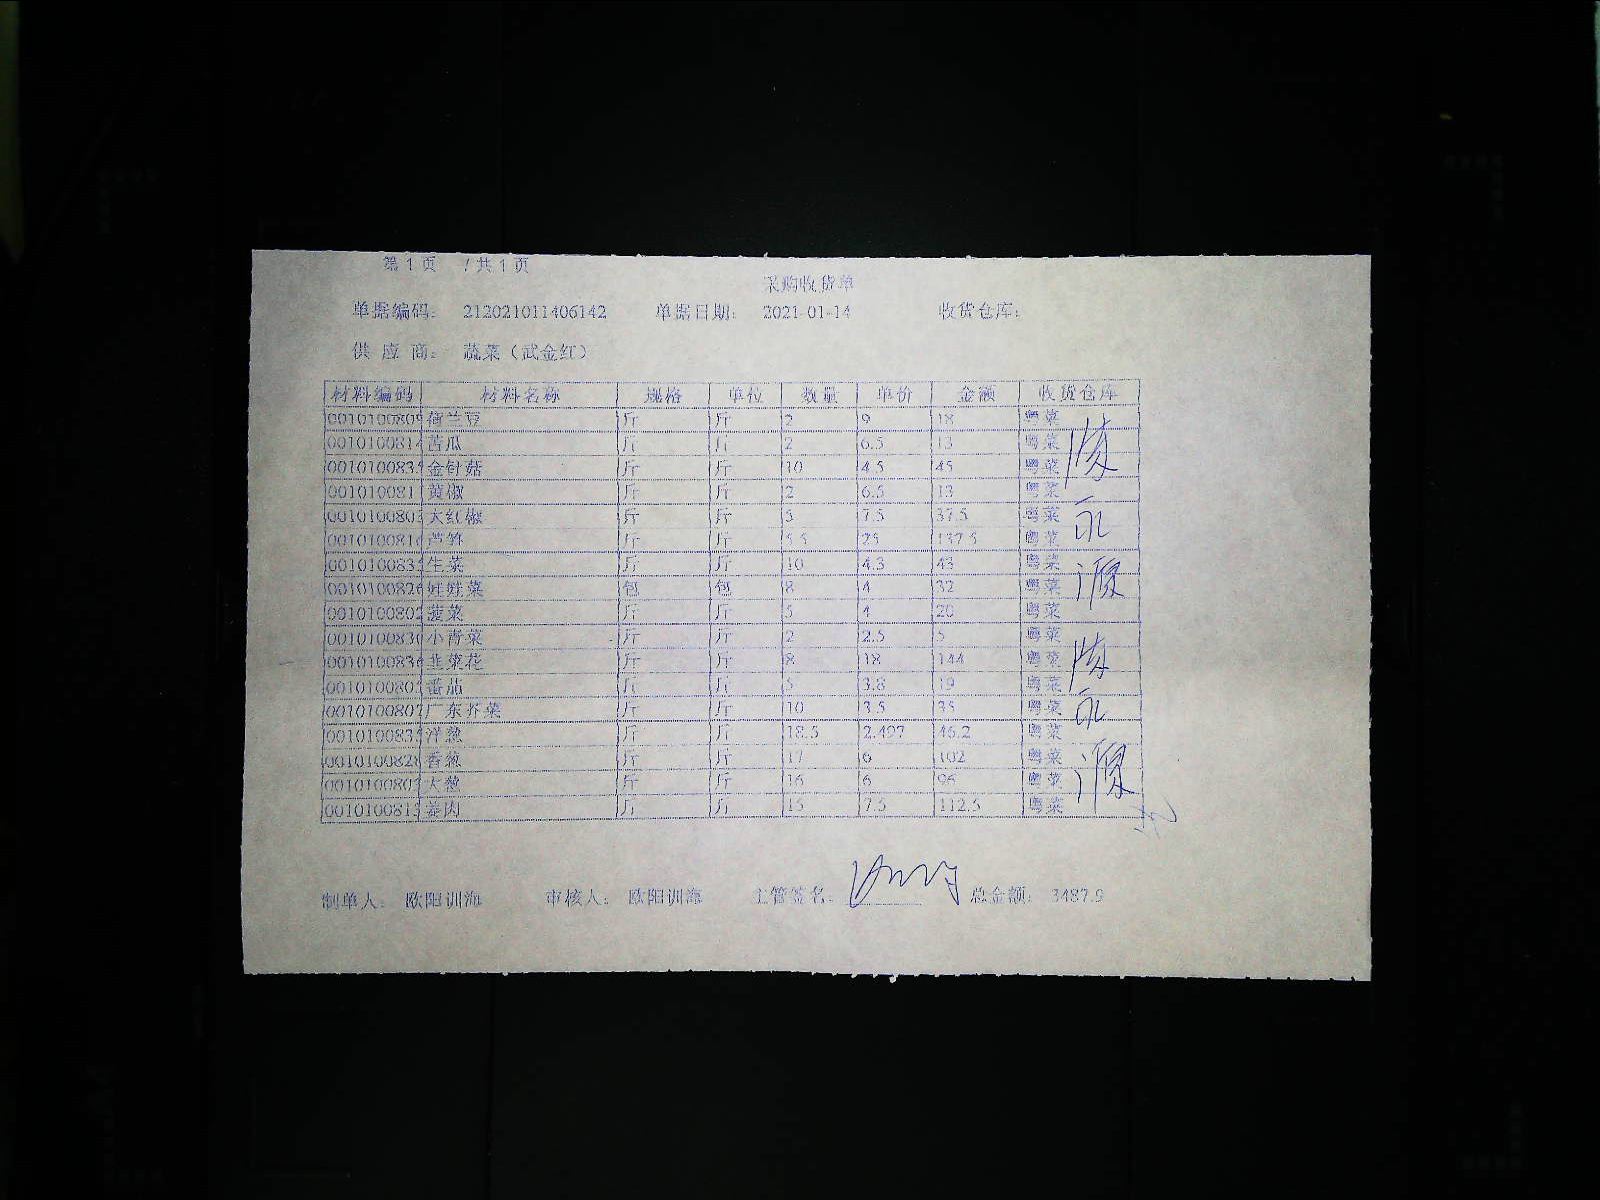 第1页 /共1页
采购收货单
单据编码： 212021011406142 单据日期： 2021-01-14 收货仓库：
供 应 商： 蔬菜（武金红）
材料编码 材料名称 规格 单位 数量 单价 金额 收货仓库
0010100809 荷兰豆 斤 斤 2 9 18 粤菜
0010100814 苦瓜 斤 斤 2 6.5 13 粤菜
001010083 金针菇 斤 斤 10 4.5 45 粤菜
001010081 黄椒 斤 斤 2 6.5 13 粤菜
001010080 大红椒 斤 斤 5 7.5 37.5 粤菜
001010081 芦笋 斤 斤 5.5 25 137.5 粤菜
001010083 生菜 斤 斤 10 4.3 43 粤菜
001010082 娃娃菜 包 包 8 4 32 粤菜
001010080 菠菜 斤 斤 5 4 20 粤菜
001010083 小青菜 斤 斤 2 2.5 5 粤菜
001010083 韭菜花 斤 斤 8 18 144 粤菜
001010080 番茄 斤 斤 5 3.8 19 粤菜
001010080 广东芥菜 斤 斤 10 3.5 35 粤菜
001010083 洋葱 斤 斤 18.5 2.497 46.2 粤菜
001010082 香葱 斤 斤 17 6 102 粤菜
001010080 大葱 斤 斤 16 6 96 粤菜
001010081 姜肉 斤 斤 15 7.5 112.5 粤菜
制单人： 欧阳训海 审核人： 欧阳训海 主管签名： 总金额： 3487.9